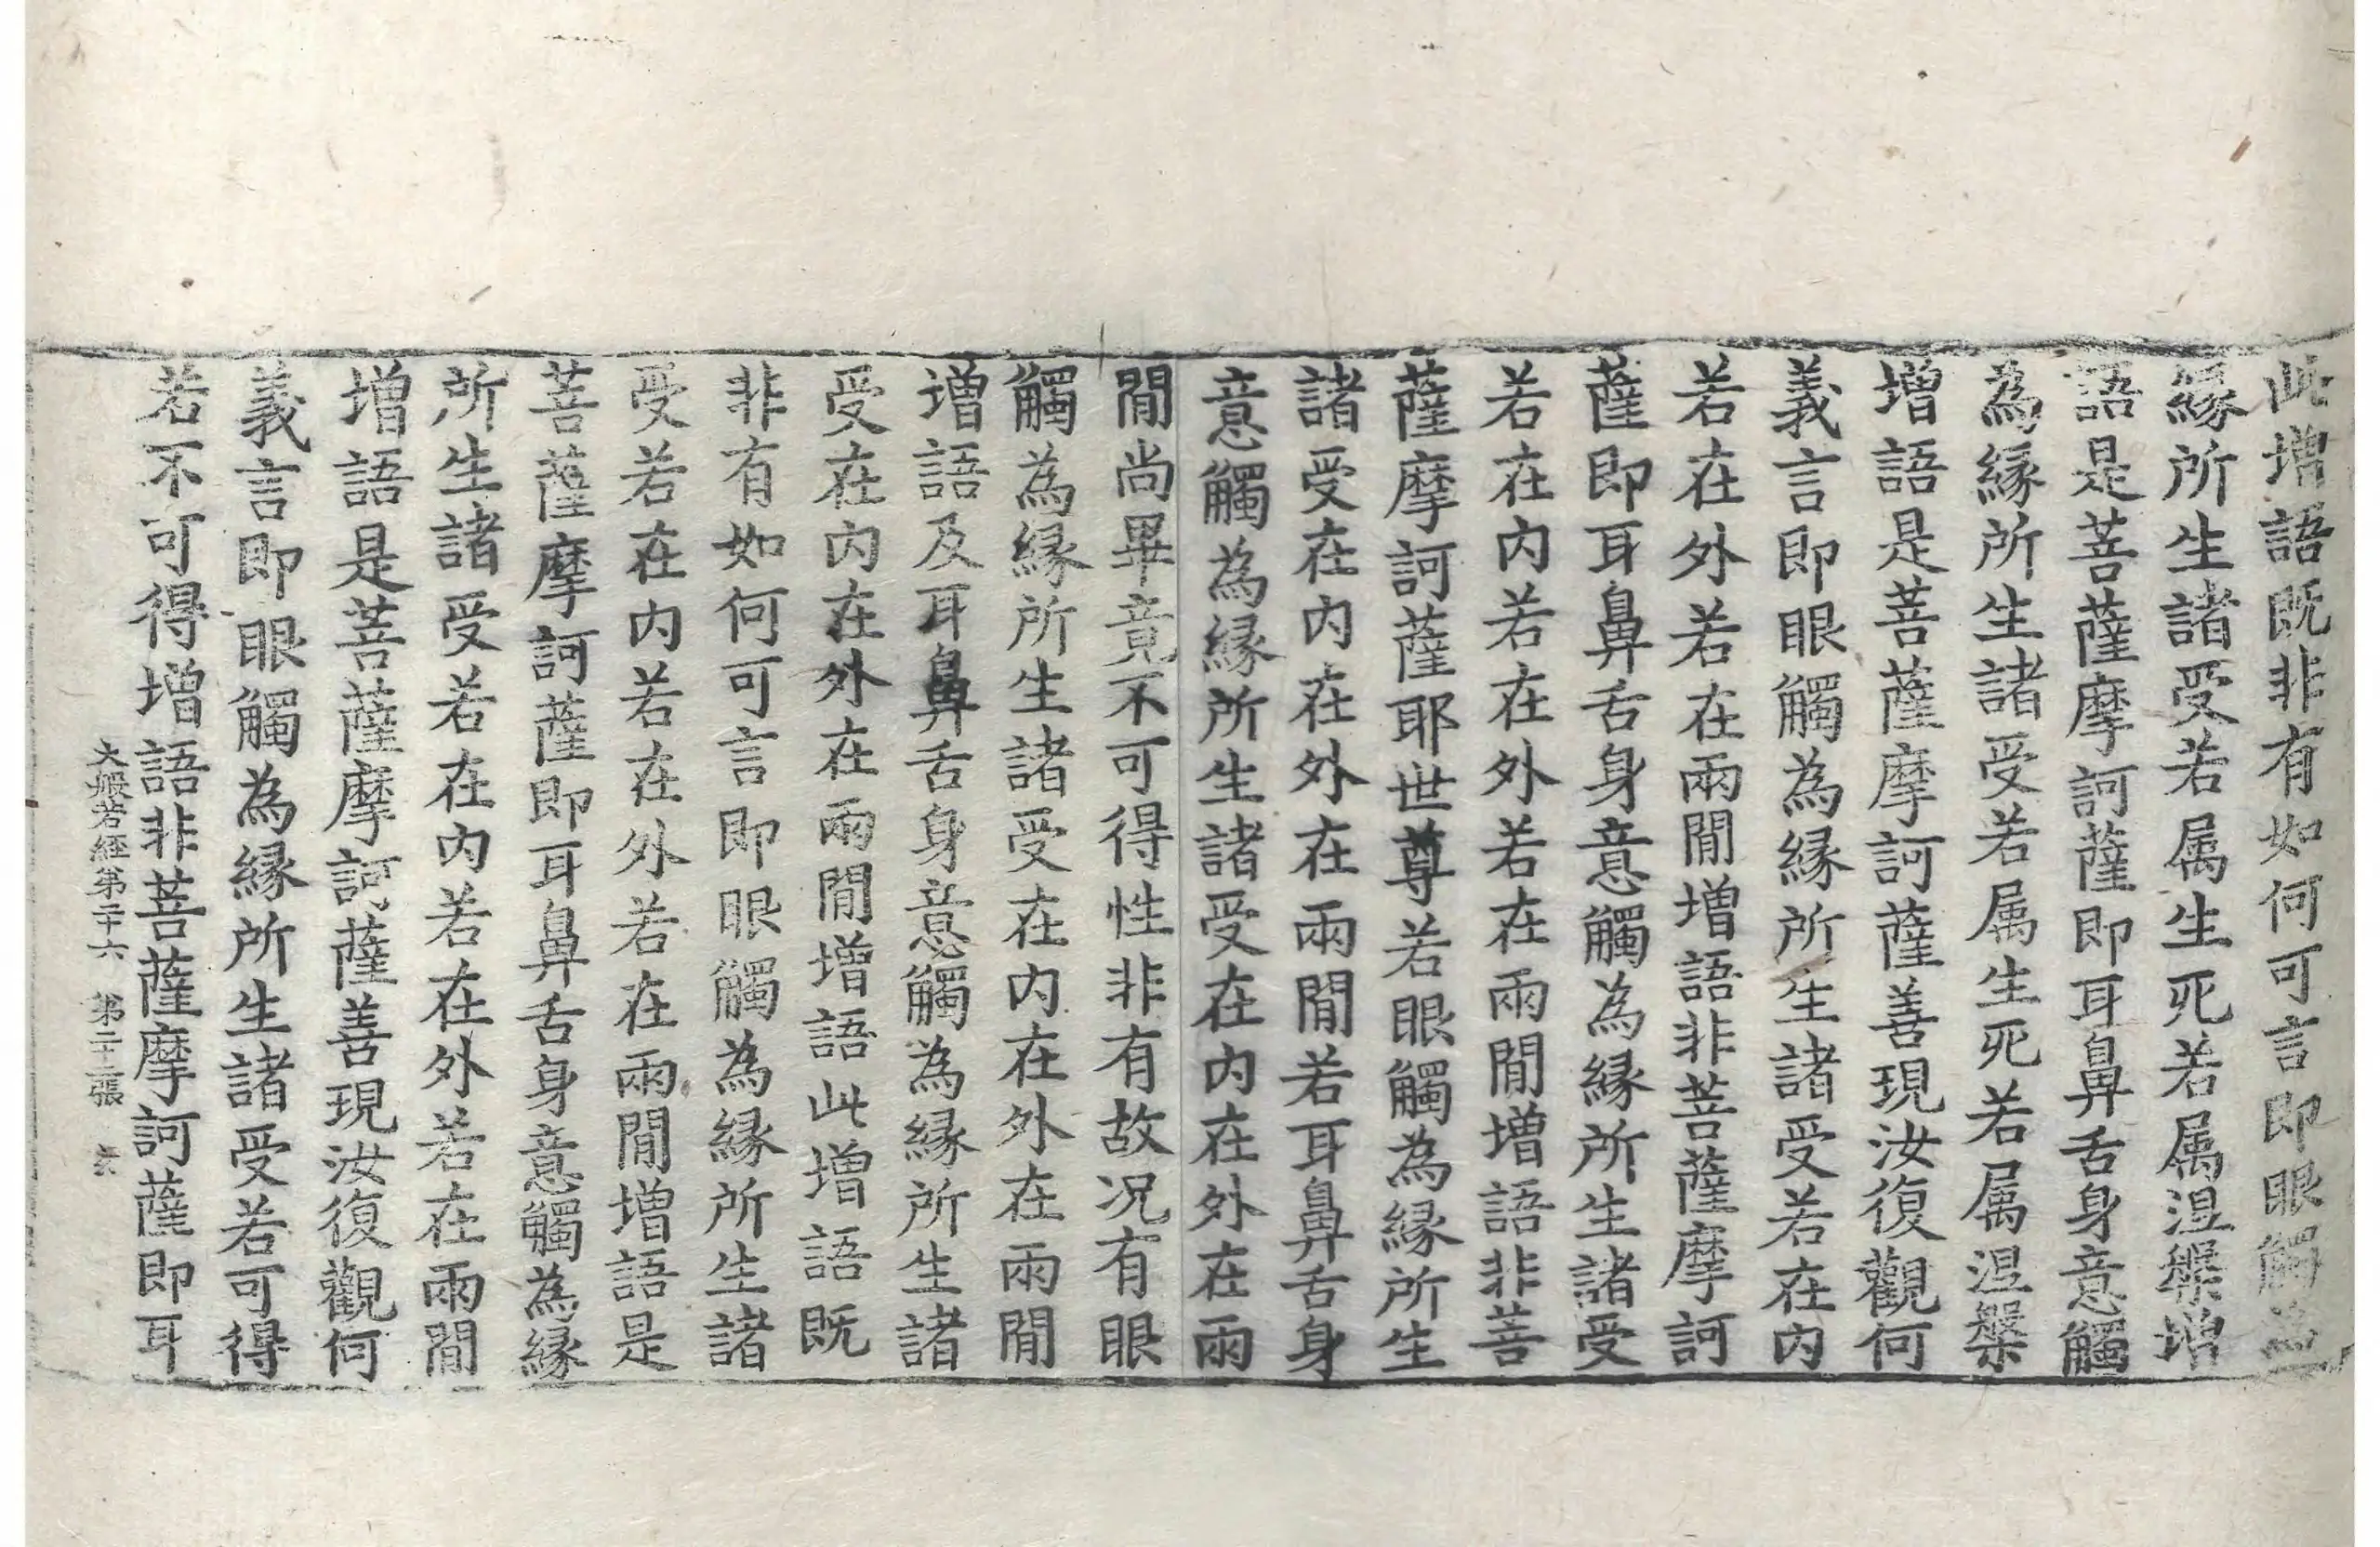 此增語既非有如何可言即眼觸為
緣所生諸受若属生死若属涅槃增
語是菩薩摩訶薩即耳鼻舌身意觸
為緣所生諸受若属生死若属涅槃
增語是菩薩摩訶薩善現汝復觀何
義言即眼觸為緣所生諸受若在内
若在外若在兩閒增語非菩薩摩訶
薩即耳鼻舌身意觸為緣所生諸受
若在内若在外若在兩閒增語非菩
薩摩訶薩耶世尊若眼觸為緣所生
諸受在内在外在兩閒若耳鼻舌身
意觸為緣所生諸受在内在外在兩
閒尚畢竟不可得性非有故况有眼
觸為緣所生諸受在内在外在兩閒
增語及耳鼻舌身意觸為緣所生諸
受在内在外在兩閒增語此增語既
非有如何可言即眼觸為緣所生諸
受若在内若在外若在兩閒增語是
菩薩摩訶薩即耳鼻舌身意觸為緣
所生諸受若在内若在外若在兩閒
增語是菩薩摩訶薩善現汝復觀何
義言即眼觸為緣所生諸受若可得
若不可得增語非菩薩摩訶薩即耳
大般若經第二十六 第二十二張